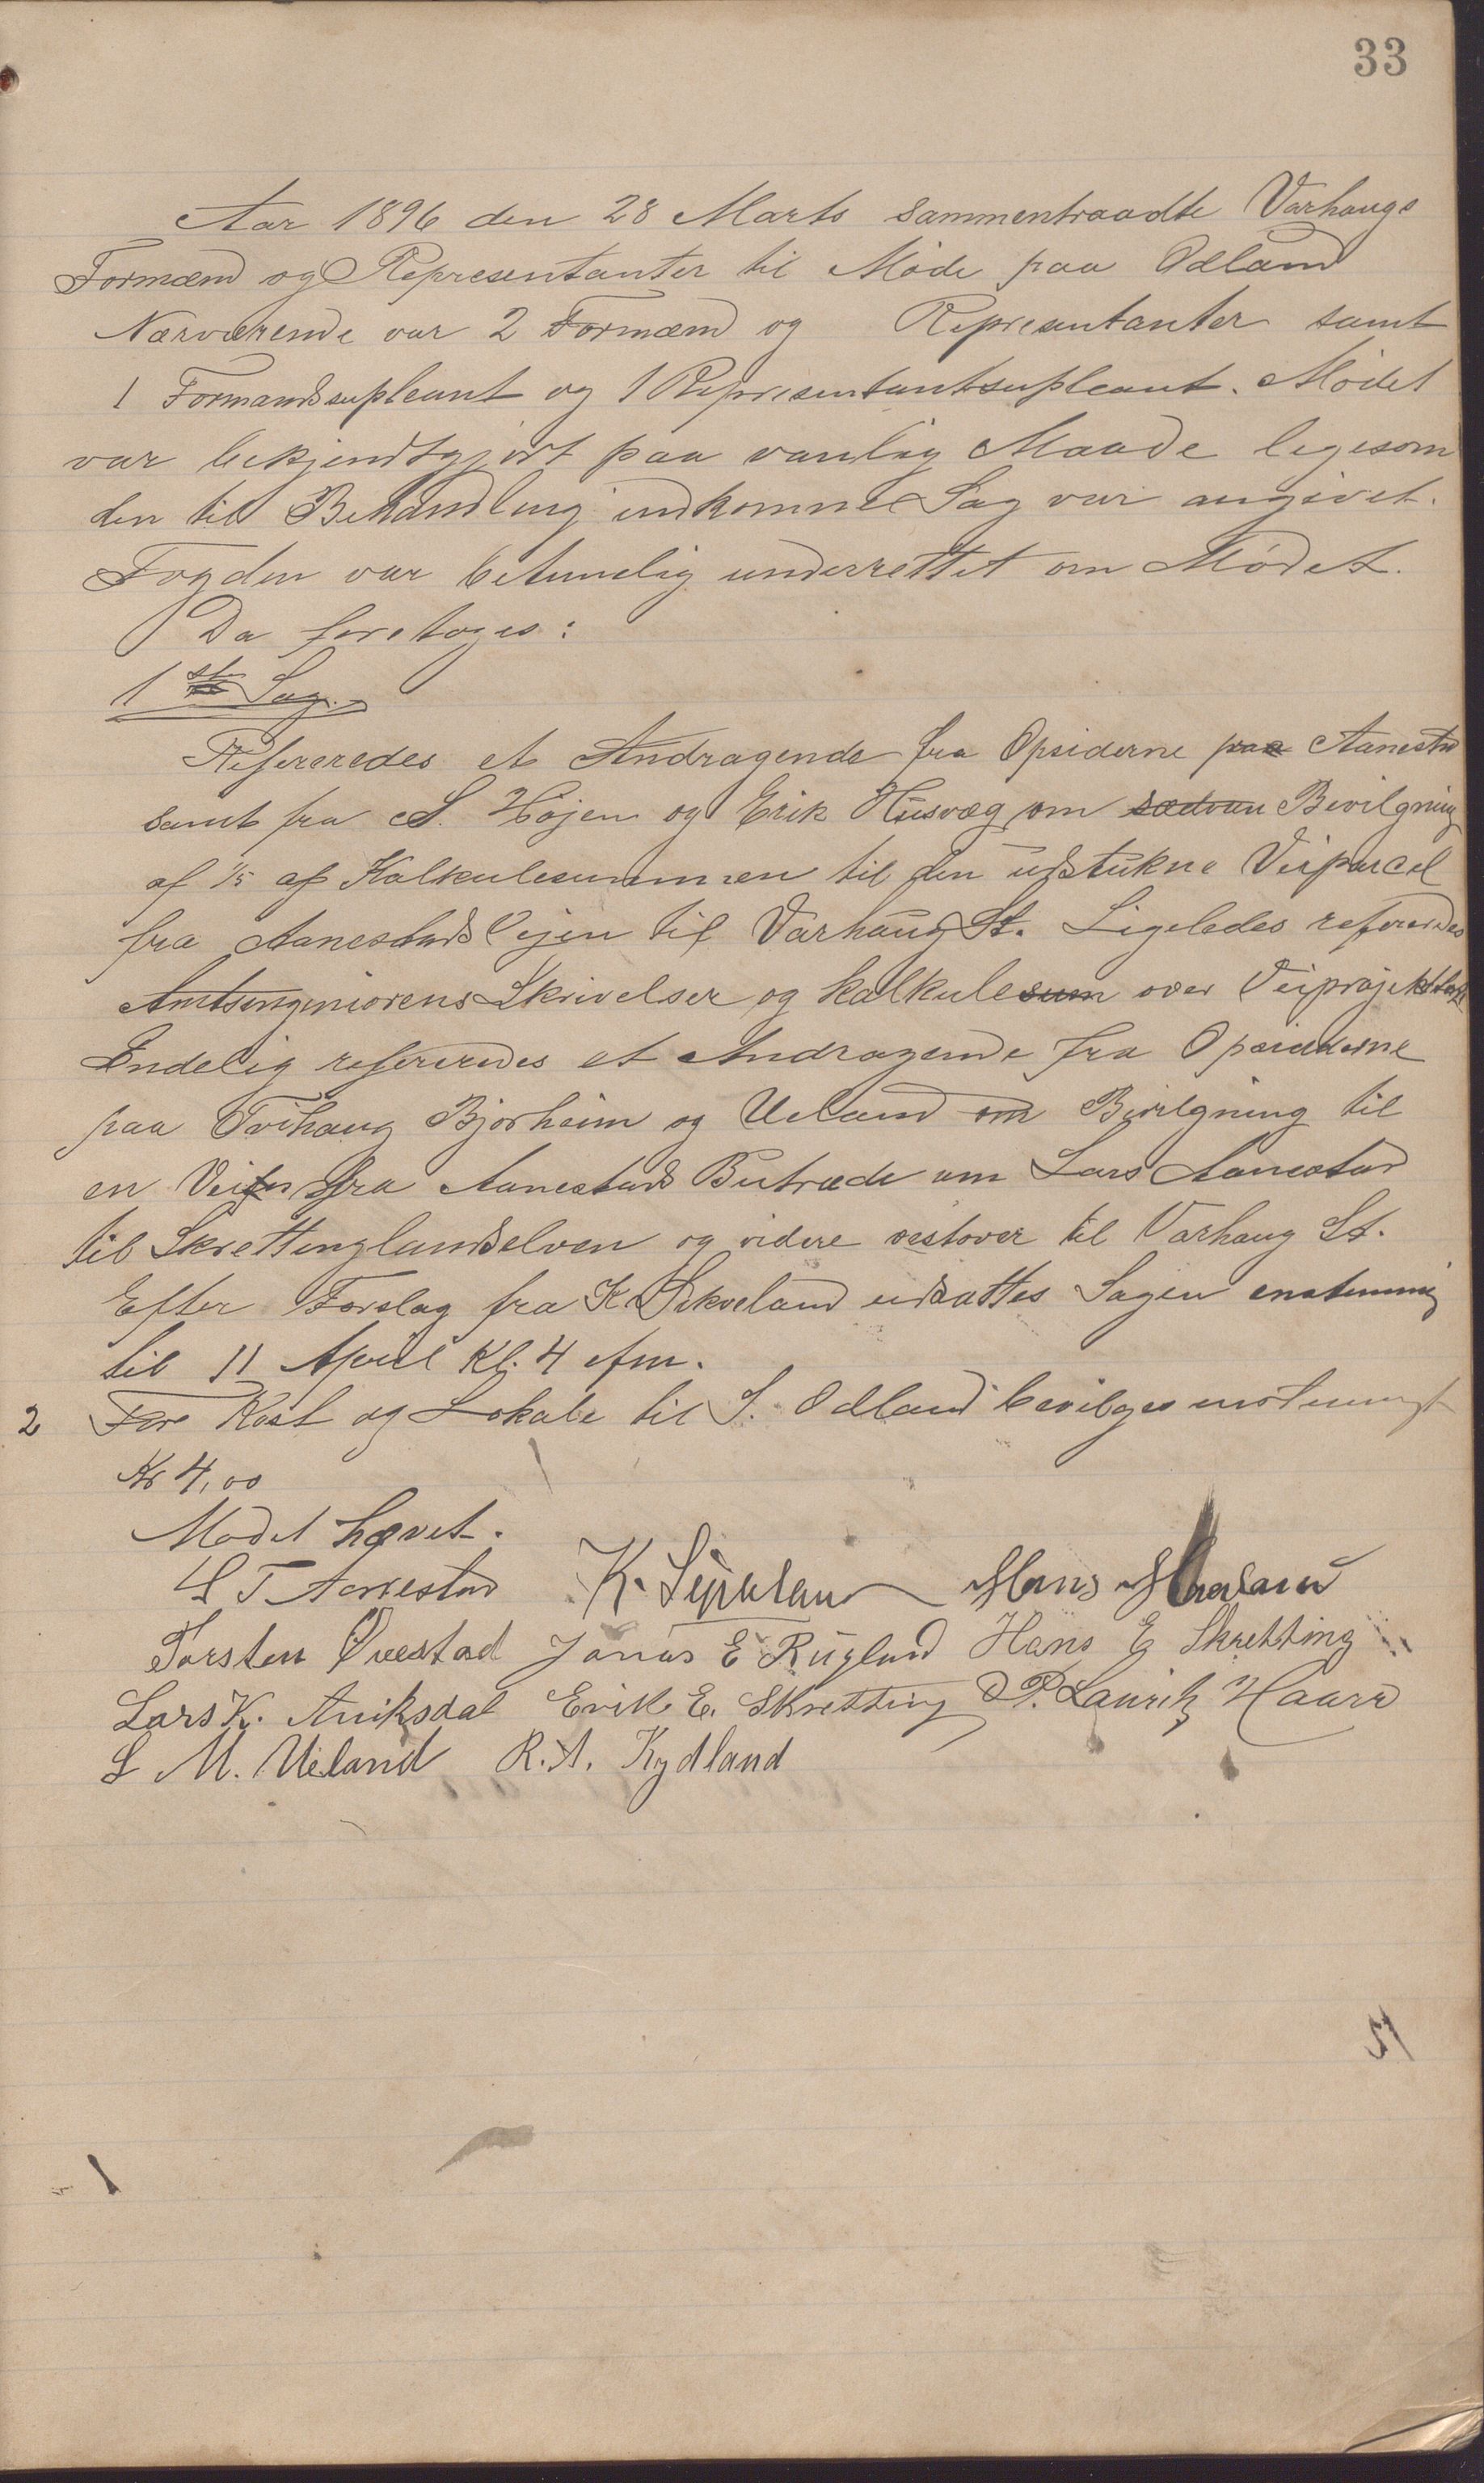 33
Aar 1896 den 28 Marts sammentraadte Varhaugs
Formænd og Representanter til Møde paa Ødland
Nærværende var 2 Formænd og Representanter samt
1 Formandssupleant og 1 Representantsupleant. Mødet
var bekjendtgjort paa vanlig Maade ligesom
den til Behandling indkomne Sag var angivet.
Fogden var betimelig underrettet om Mødet.
Da foretoges:
1ste Sag.
Refereredes et Andragende fra Opsiderne paa Aanestad
samt fra S. Højen og Erik Husvæg om sædvan Bevilgning
af 1/5 af Kalkulesummen til den udstukne Veiparcel
fra Aanestads til Varhaug St. Ligeledes refereredes
Amtsingeniørens Skrivelser og Kalkulesum over
Endelig refereredes et Andragende fra Opsiderne
paa Tvihaug Bjorheim og Ueland om Bevilgning til
en Vei fra Aanestads Butræde om Lars Aanestad
til Skrettinglandselven og videre vestover til Varhaug St.
Efter Forslag fra K Sikveland udsattes Sagen enstemmig
til 11 April Kl. 4 efm.
2 For Kost og Lokale til S. Odland bevilges enstemmigt
Kr 4,00
Mødet hævet.
T Aanestad K. Hans
Torsten Ovestad Jonas E Rugland Hans E Skretting
Lars K. Aniksdal Erik E. Skretting P. Lauritz Haarr
L M. Ueland R. A. Kydland